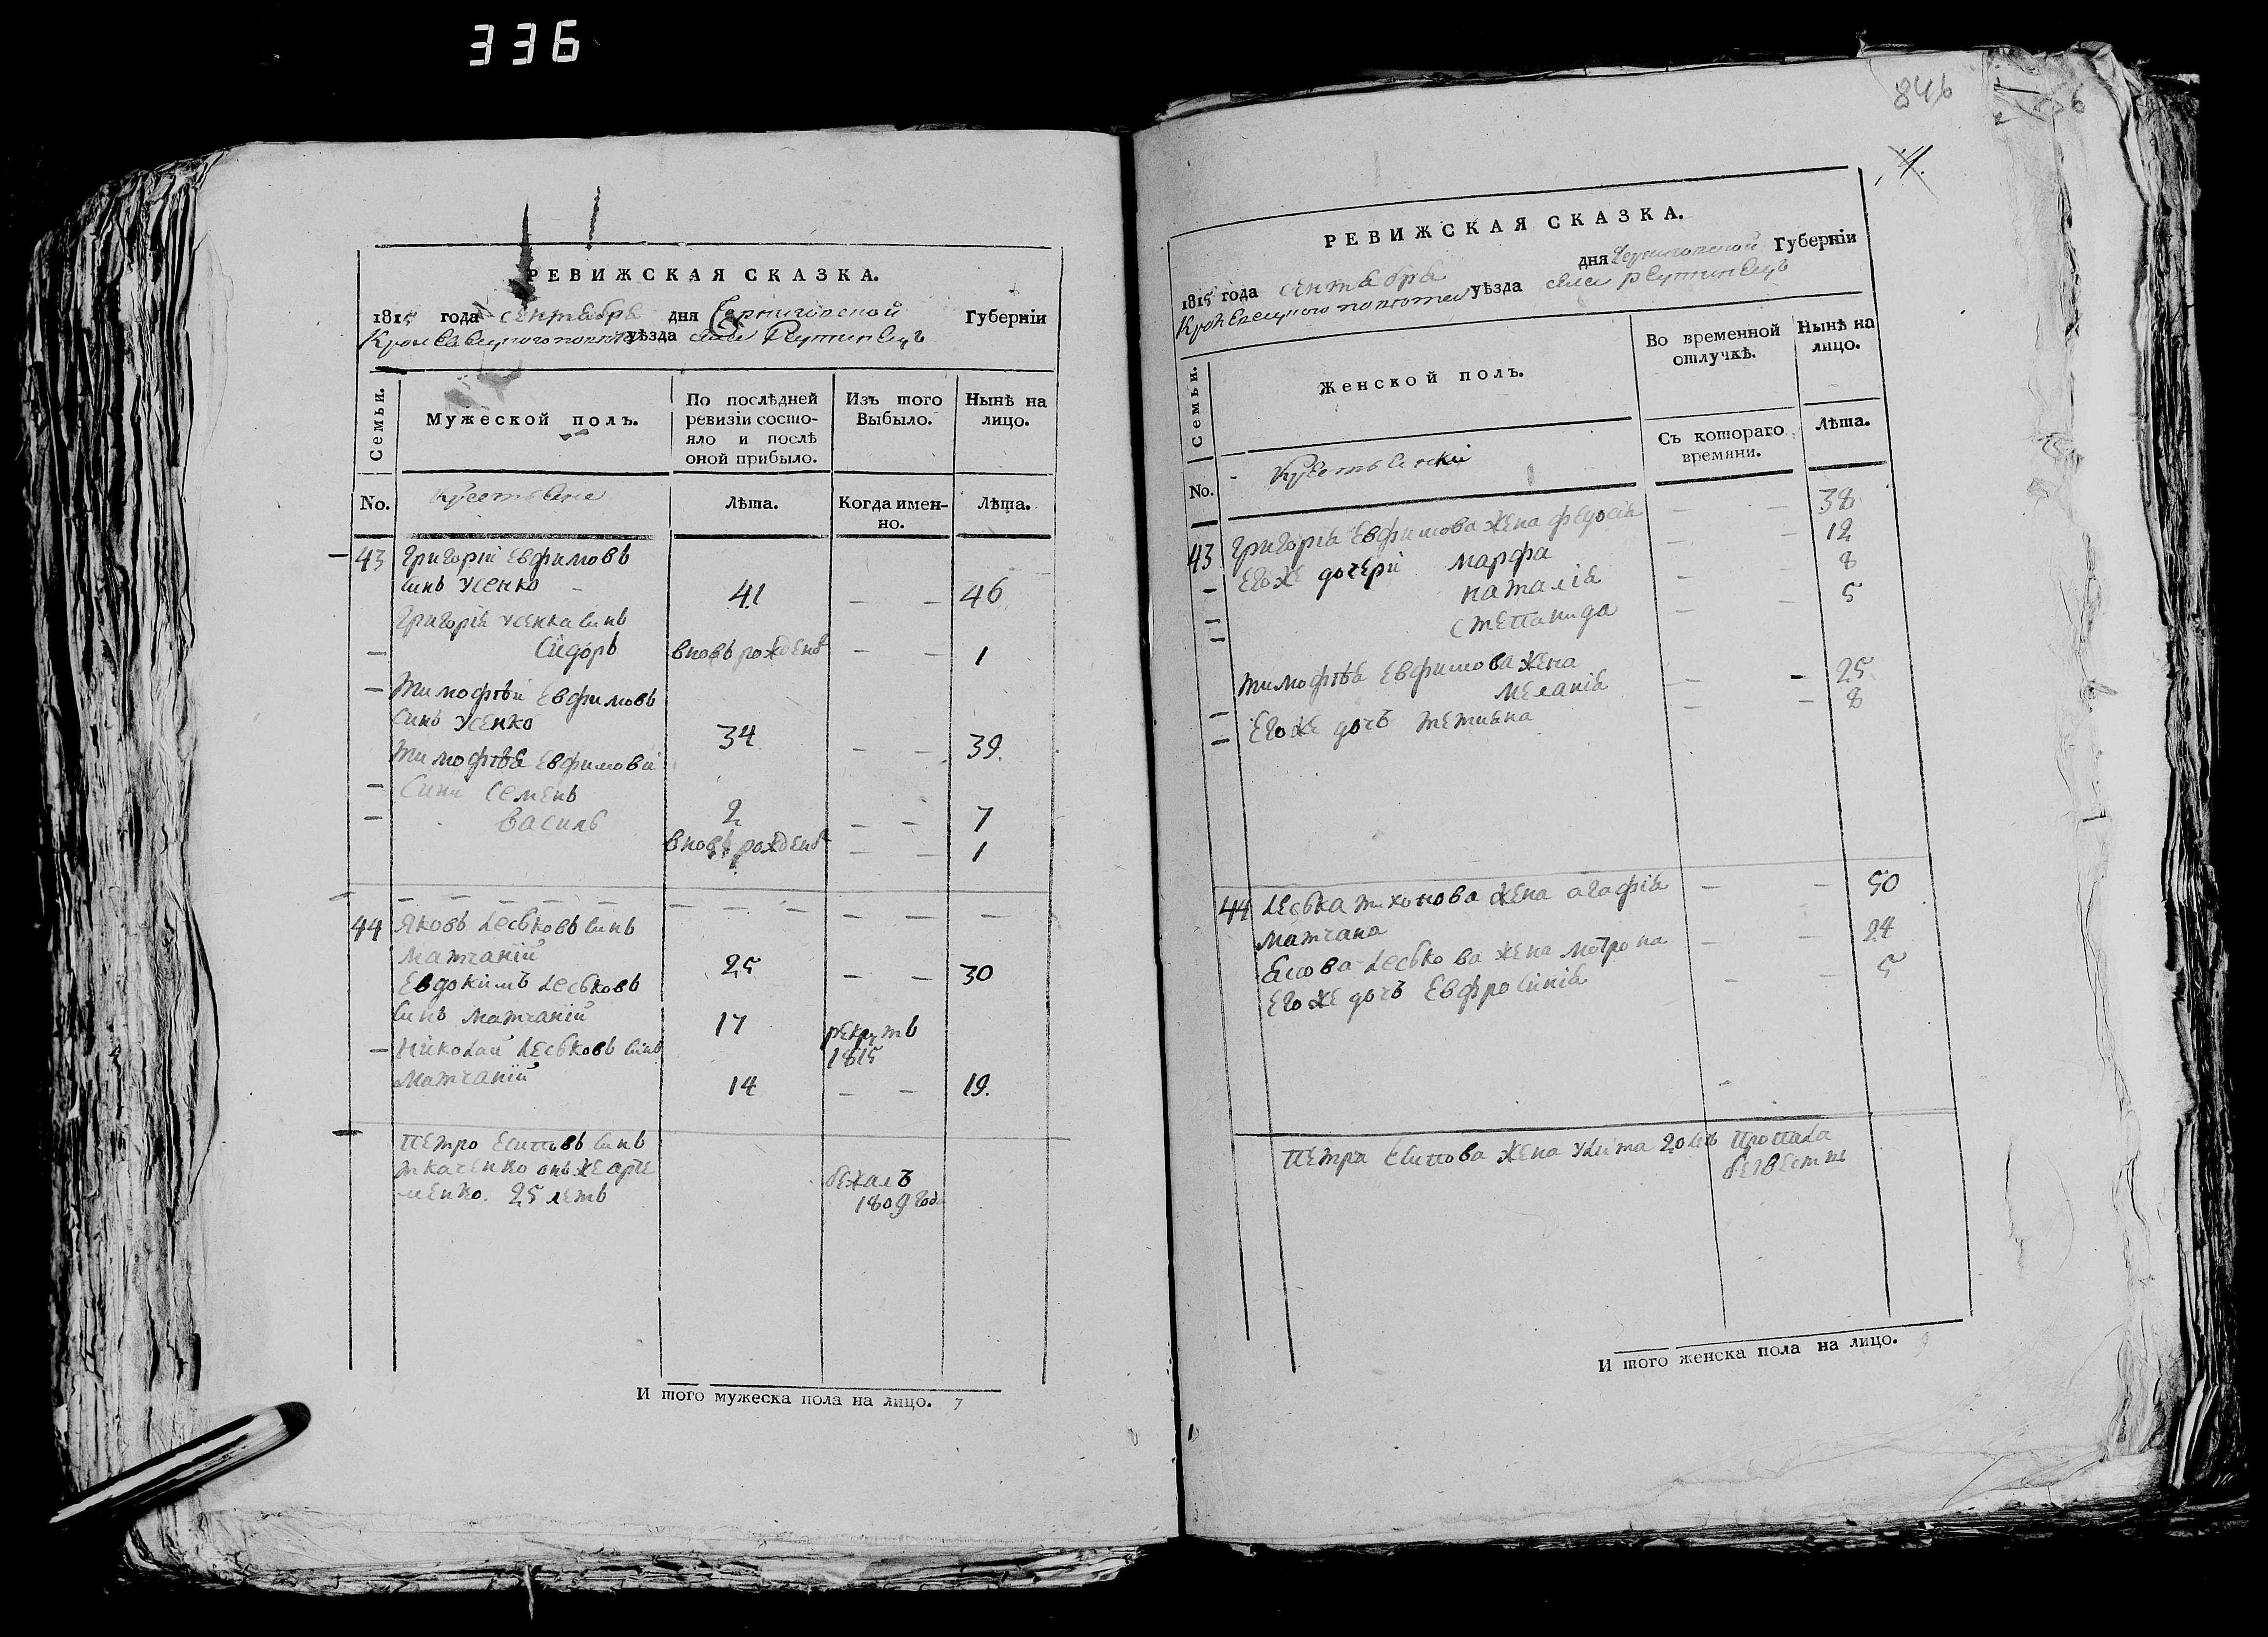 336
РЕВИЖСКАЯ СКАЗКА.
1815 года сентабра дня Черниговской Губерніи
Кролевецкого повѣта уѣзда села Реутинецъ
Семьи.
Мужеской полъ.
По послѣдней ревизіи состо-
яло и послѣ
оной прибыло.
Изъ того
Выбыло.
Нынѣ на
лицо.
No. Крестьяне Лѣта. Когда имен-
но. Лѣта.
43 Григорій Евфимовъ
синъ Усенко 41 — — 46
Григоріа Усенка синъ
Сидоръ вновь рожденъ — — 1
Тимофѣй Евфимовъ
синъ Усенко 34 — — 39.
Тимофѣа Евфимова
Сини Семенъ 2 — — 7
Василь вновь рожденъ — — 1
44 Яковъ Леськовъ синъ
Матчаній 25 — — 30
Евдокимъ Леськовъ
синъ Матчаній 17 рекрутъ
1815
Николай Леськовъ синъ
Матчаній 14 — — 19.
Петро Есиповъ синъ
Ткаченко онъ же
25 летъ бежалъ
1809 год
И того мужеска пола на лицо. 7
846
РЕВИЖСКАЯ СКАЗКА.
1815 года сентабра дня Черниговской Губерніи
Кролевецкого повѣта уѣзда села Реутинецъ
Семьи.
Женской полъ.
Во временной
отлучкѣ.
Нынѣ на
лицо.
No. Крестьянки Съ котораго
времяни. Лѣта.
43 Григоріа Евфимова жена Федосіа — — 38
Егоже дочери Марфа — — 12
Наталіа — — 8
Степанида — — 5
Тимофѣа Евфимова жена
Меланіа — — 25
Егоже дочъ Тетиана — — 8
44 Леська Тихонова жена Агафіа — — 50
Матчана
Якова Леськова жена Мотрона — — 24
Егоже дочъ Евфросиніа — — 5
Петра Есипова жена Улита 20 летъ пропала
безвестнь
И того женска пола на лицо. 9